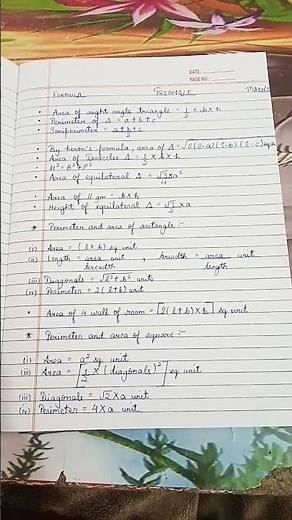 DATE
PAGE NO.
FORMULA TRIANGLE MATHS
• Area of right angle triangle = 1/2 × b × h
• Perimeter of Δ = a + b + c
• Semiperimeter = a + b + c / 2
• By heron's formula, area of Δ = √s(s-a)(s-b)(s-c) sq u
• Area of Isosceles Δ = 1/2 × b × h
H² = B² + P²
• Area of equilateral Δ = √3/4 × a²
• Area of || gm = b × h
• Height of equilateral Δ = √3/2 × a
* Perimeter and area of rectangle :-
(i) Area = (l × b) sq unit
(ii) Length = area / breadth unit, breadth = area / length unit
(iii) Diagonals = √l² + b² units
(iv) Perimeter = 2(l+b) unit
• Area of 4 wall of room = [2(l+b) × h] sq unit
* Perimeter and area of square :-
(i) Area = a² sq unit
(ii) Area = [1/2 × (diagonals)²] sq unit
(iii) Diagonal = √2 × a unit
(iv) Perimeter = 4 × a unit